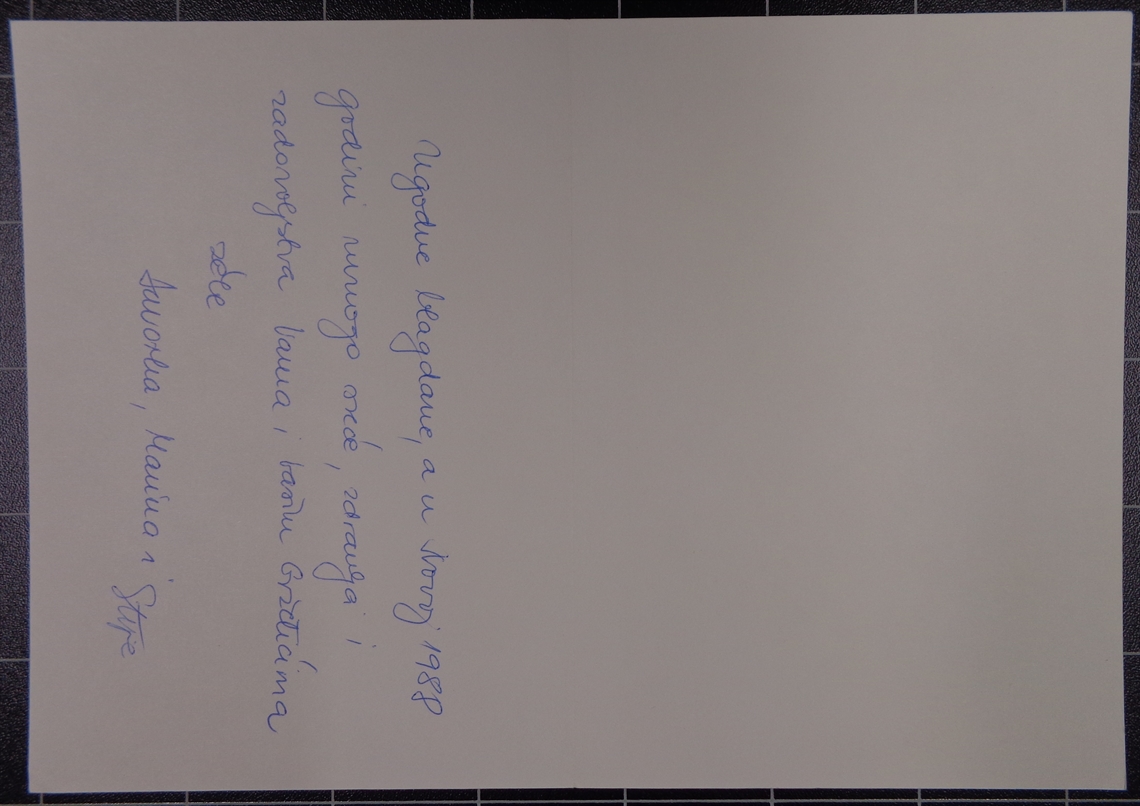 Ugodne blagdane, a u Novoj 1988
godini mnogo sreće, zdravlja i
zadovoljstva Vama i Vašim
žele
Davorka, Marina i Stipe